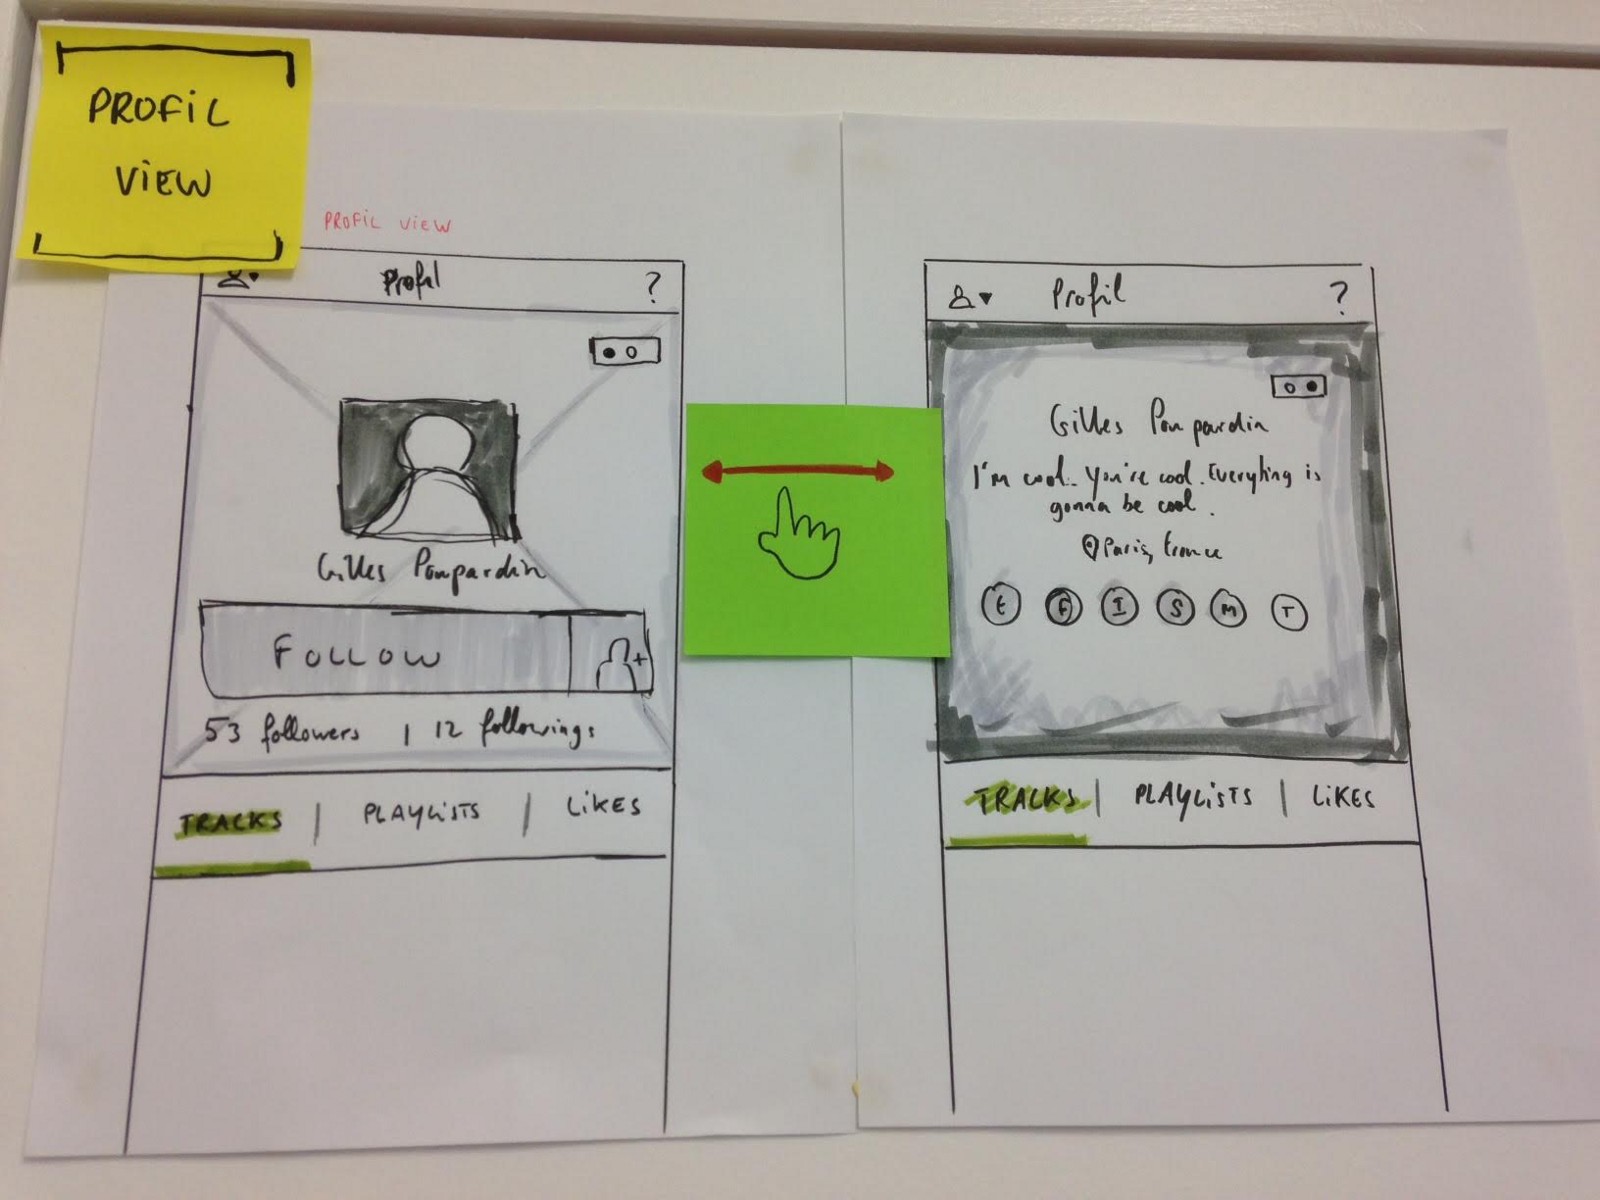 PROFIL
VIEW
PROFIL VIEW
Profil
?
Gilles Poupardin
FOLLOW
+
53 followers | 12 followings
TRACKS | PLAYLISTS | LIKES
Profil
?
Gilles Poupardin
I'm cool. You're cool. Everything is
gonna be cool.
Paris, France
t F I S M T
TRACKS | PLAYLISTS | LIKES